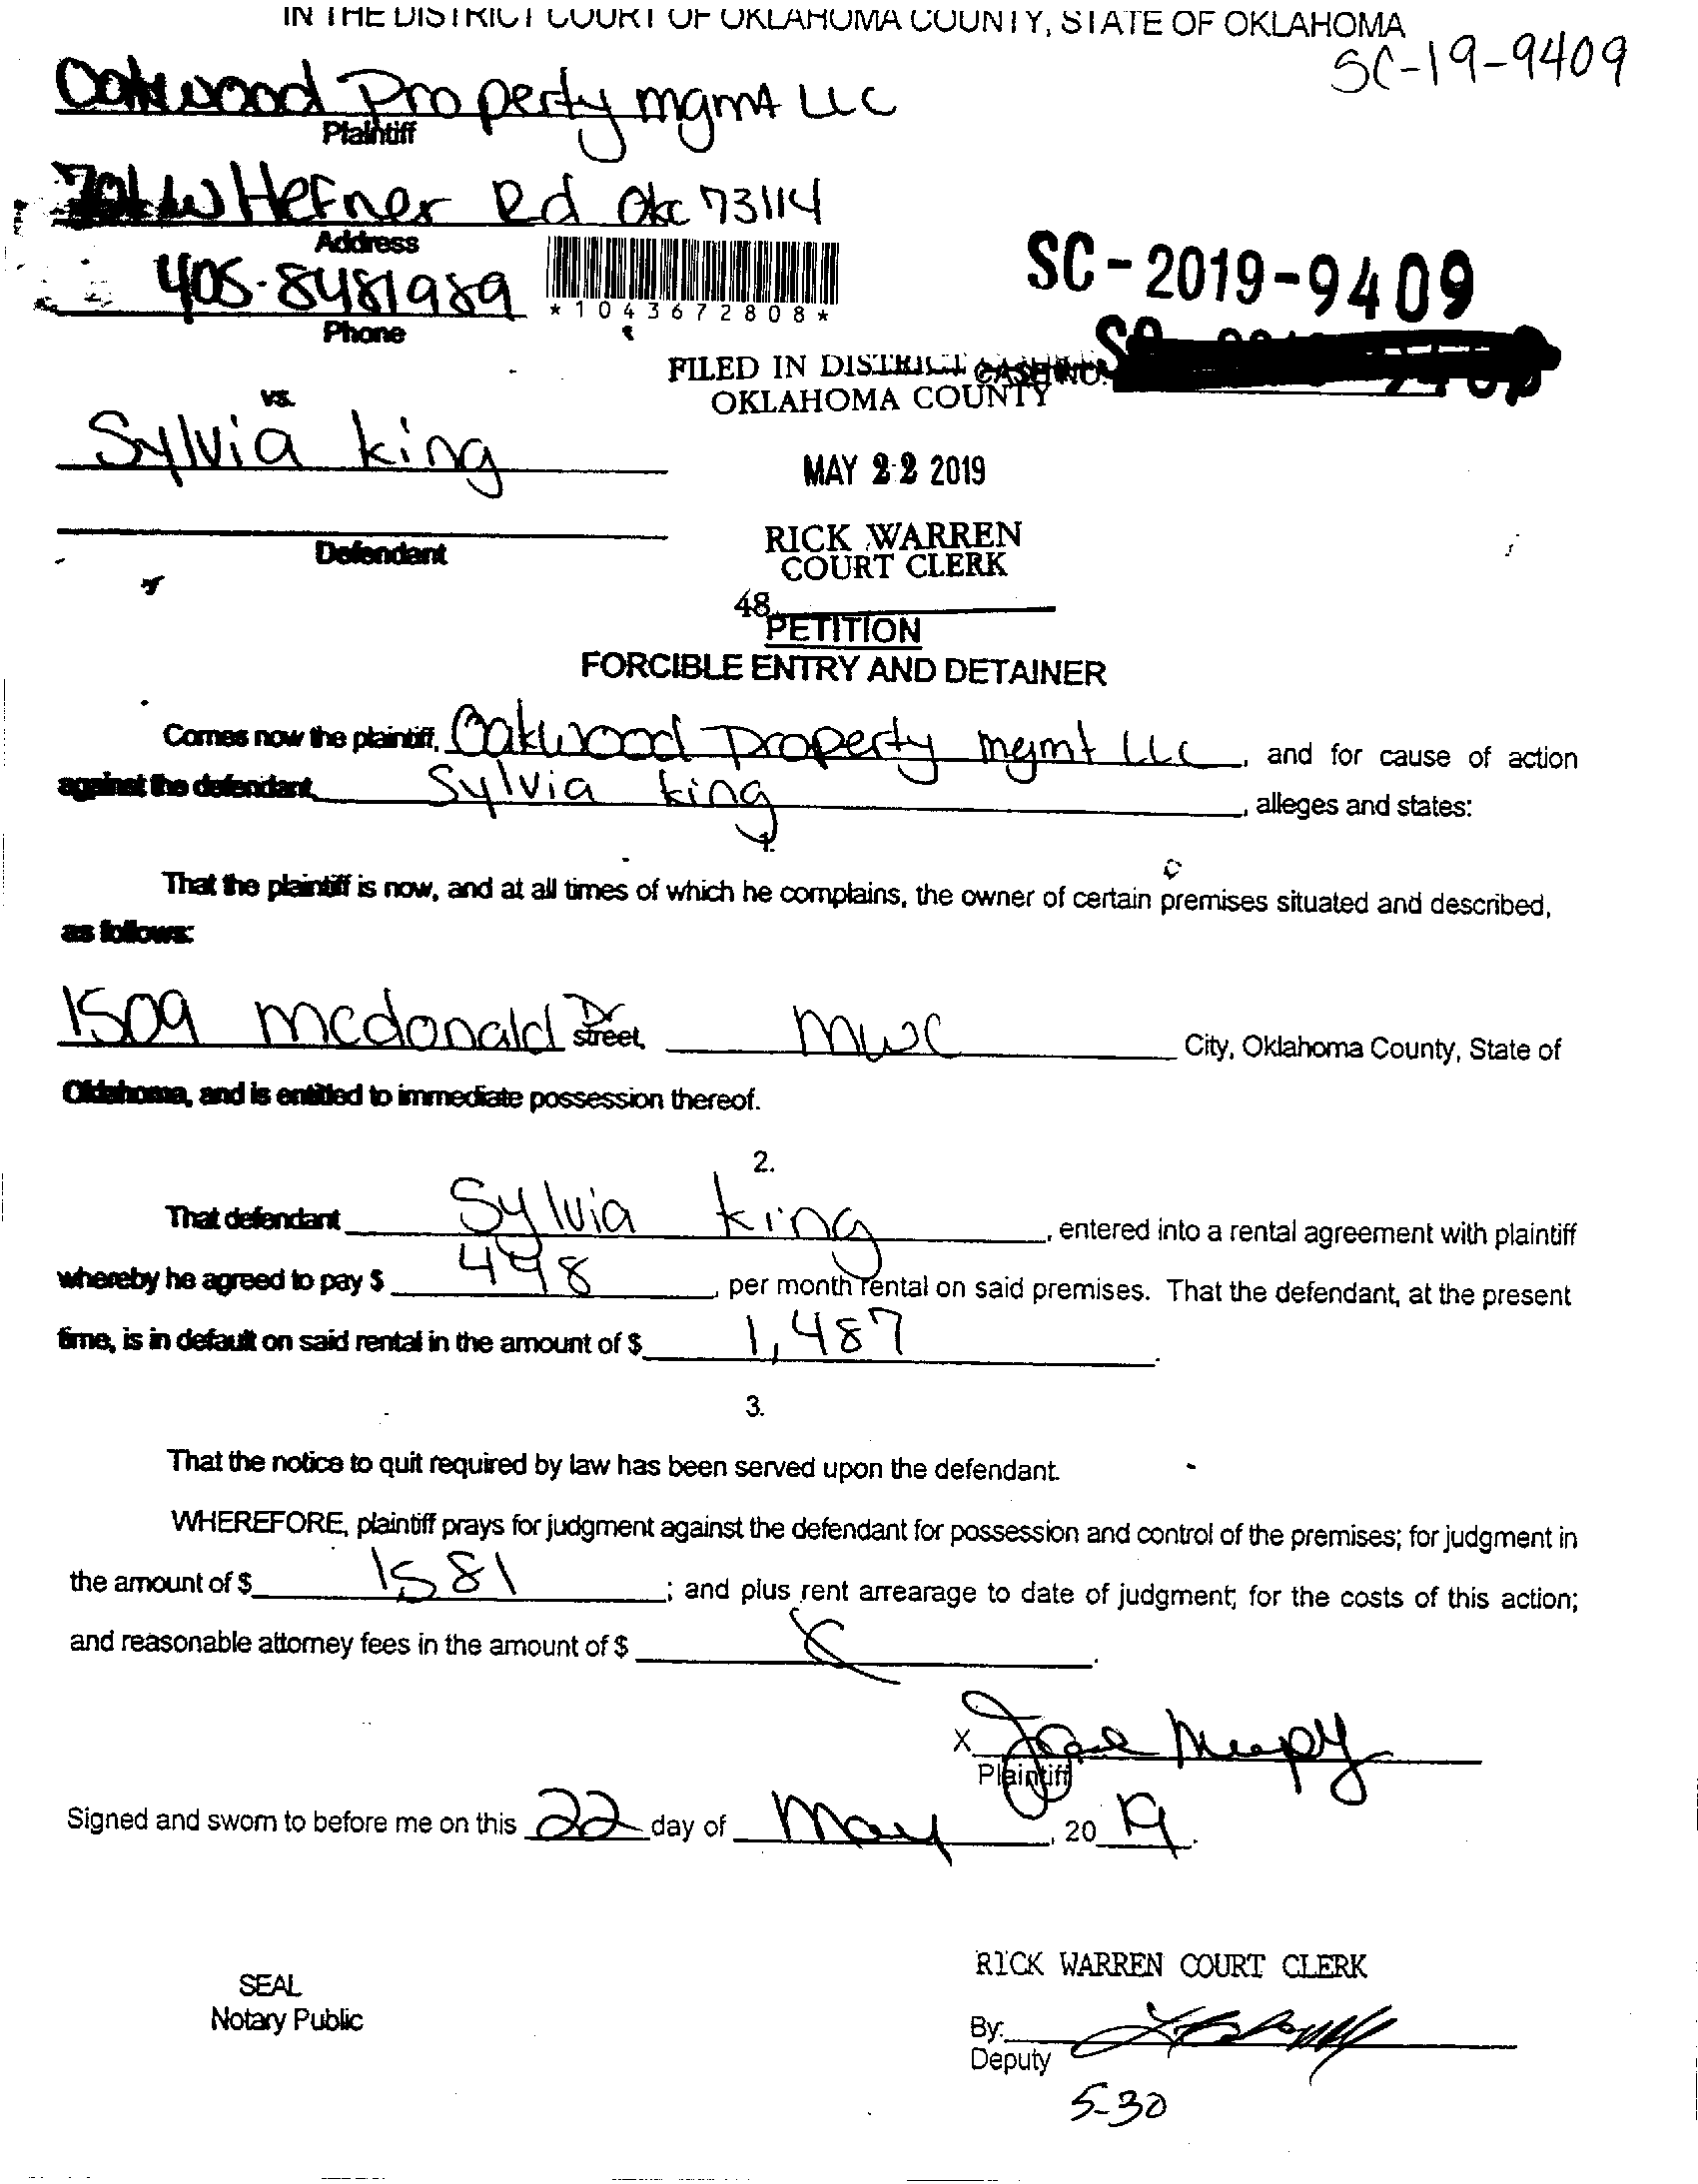 IN THE DISTRICT COURT OF OKLAHOMA COUNTY, STATE OF OKLAHOMA
SC-19-9409
Oakwood Property mgmt LLC
Plaintiff
W Hefner Rd Okc 73114
Address
405-8481989
*1043672808*
SC-2019-9409
Phone
FILED IN DISTRICT
OKLAHOMA COUNTY
vs.
Sylvia King
MAY 22 2019
Defendant
RICK WARREN
COURT CLERK
48
PETITION
FORCIBLE ENTRY AND DETAINER
Comes now the plaintiff, Oakwood Property mgmt LLC, and for cause of action
against the defendant, Sylvia King, alleges and states:
1.
That the plaintiff is now, and at all times of which he complains, the owner of certain premises situated and described,
as follows:
1509 mcdonald Dr street, mwc City, Oklahoma County, State of
Oklahoma, and is entitled to immediate possession thereof.
2.
That defendant Sylvia King, entered into a rental agreement with plaintiff
whereby he agreed to pay $ 498, per month rental on said premises. That the defendant, at the present
time, is in default on said rental in the amount of $ 1,487.
3.
That the notice to quit required by law has been served upon the defendant.
WHEREFORE, plaintiff prays for judgment against the defendant for possession and control of the premises; for judgment in
the amount of $ 1581; and plus rent arrearage to date of judgment; for the costs of this action;
and reasonable attorney fees in the amount of $
X
Plaintiff
Signed and sworn to before me on this 22 day of May, 2019.
RICK WARREN COURT CLERK
SEAL
Notary Public
By:
Deputy
5-30